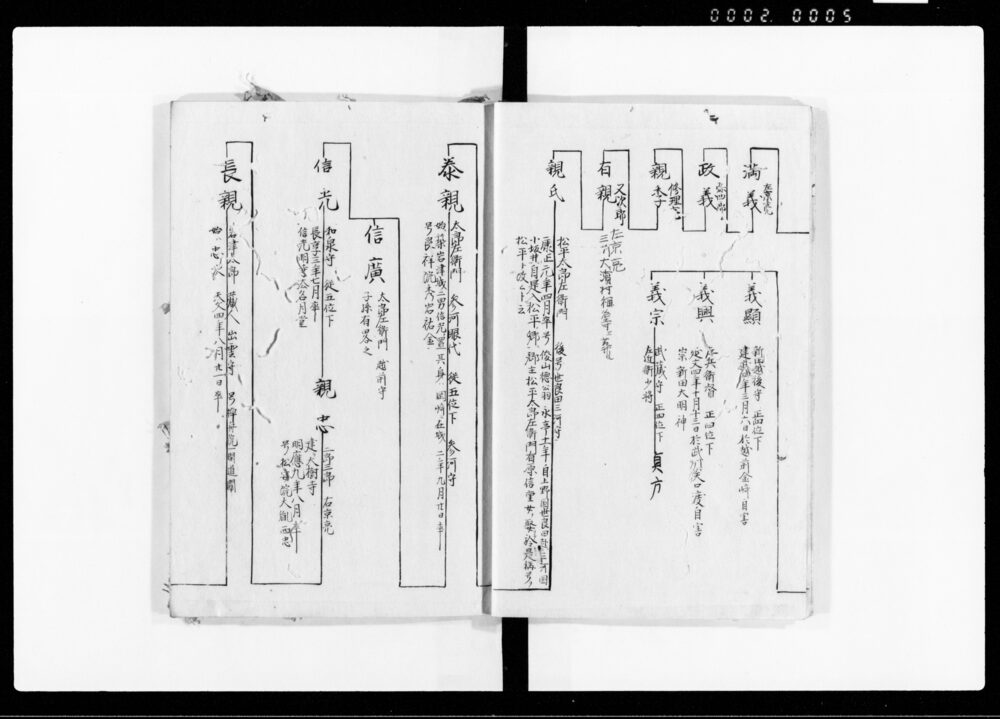 0002.0005
満義
左京亮
政義
弥四郎
親季
修理亮
有親
又次郎
左京亮
親氏
松平太郎左衛門 後号世良田三河守
康正元年四月卒号俊山徳翁 永享十一年自上野国世良田三河国
小坂井自是入松平郷郷主松平太郎左衛門有原信重女娶於是称号
松平ト改ムト云
義顕
新田越後守 正四位下
建武四年三月六日於越前金崎自害
義興
左兵衛督 正四位下
延文四年十月十三日於武州矢口渡自害
崇新田大明神
義宗
武蔵守 正四位下
左近衛少将
貞方
泰親
太郎左衛門 参河眼代 従五位下 参河守
始築岩津城三男信光置其身岡崎在城 二年九月廿日卒
号良祥院秀岩祐金
信廣
太郎左衛門 越前守
子孫有畧之
信光
和泉守 従五位下
長享三年七月卒
信光明寺崇岳月堂
親忠
二郎三郎 右京亮
建大樹寺
明應九年八月卒
号松安院大胤西忠
長親
岩津八郎 蔵人 出雲守 号棹舟院一閑道閲
始忠次 天文四年八月廿一日卒